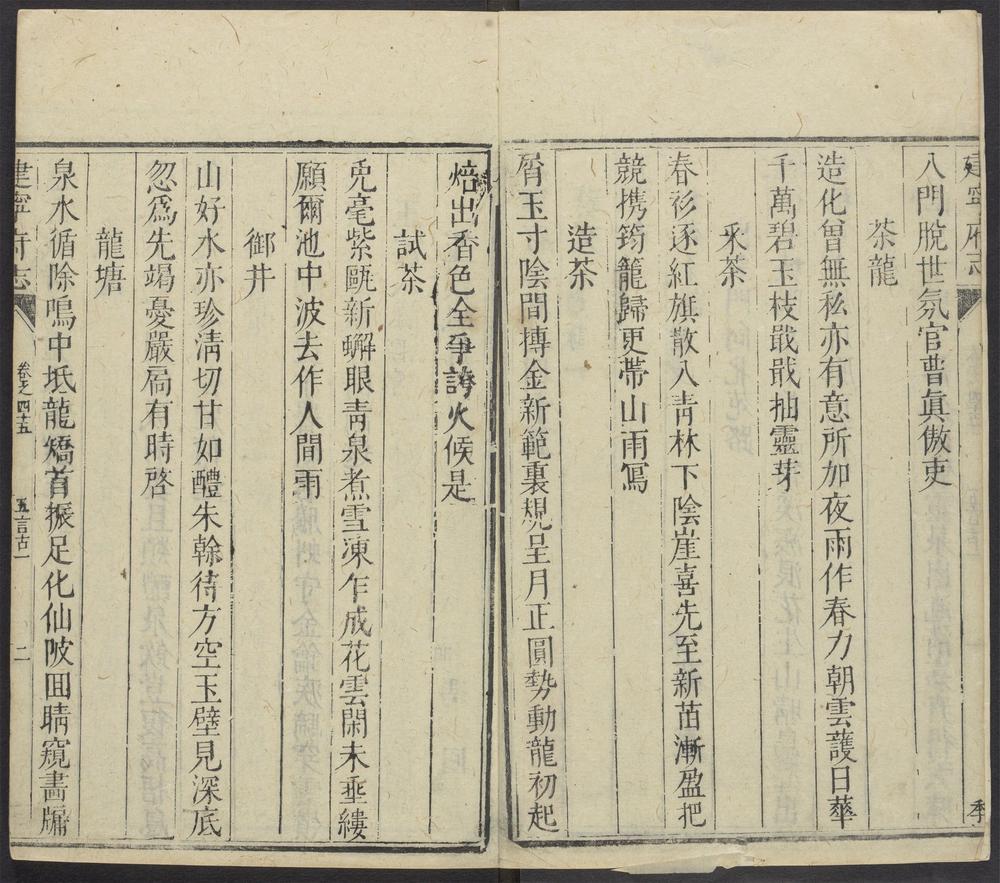 建寧府志
八門脫世氛官曹眞傲吏
茶龍
造化曾無私亦有意所加夜雨作春力朝雲護日華
千萬碧玉枝戢戢抽靈芽
采茶
春衫逐紅旗散入青林下陰崖喜先至新苗漸盈把
競携筠籠歸更帶山雨寫
造茶
屑玉寸陰間摶金新範裏規呈月正圓勢動龍初起
焙出香色全爭誇火候是
試茶
兎毫紫甌新蠏眼青泉煮雪凍乍成花雲閑未垂縷
願爾池中波去作人間雨
御井
山好水亦珍清切甘如醴朱榦待方空玉壁見深底
忽爲先竭憂嚴扃有時啓
龍塘
泉水循除鳴中坻龍矯首振足化仙陂回睛窺畫牖
建寧府志
卷之四十五
五言古一
二